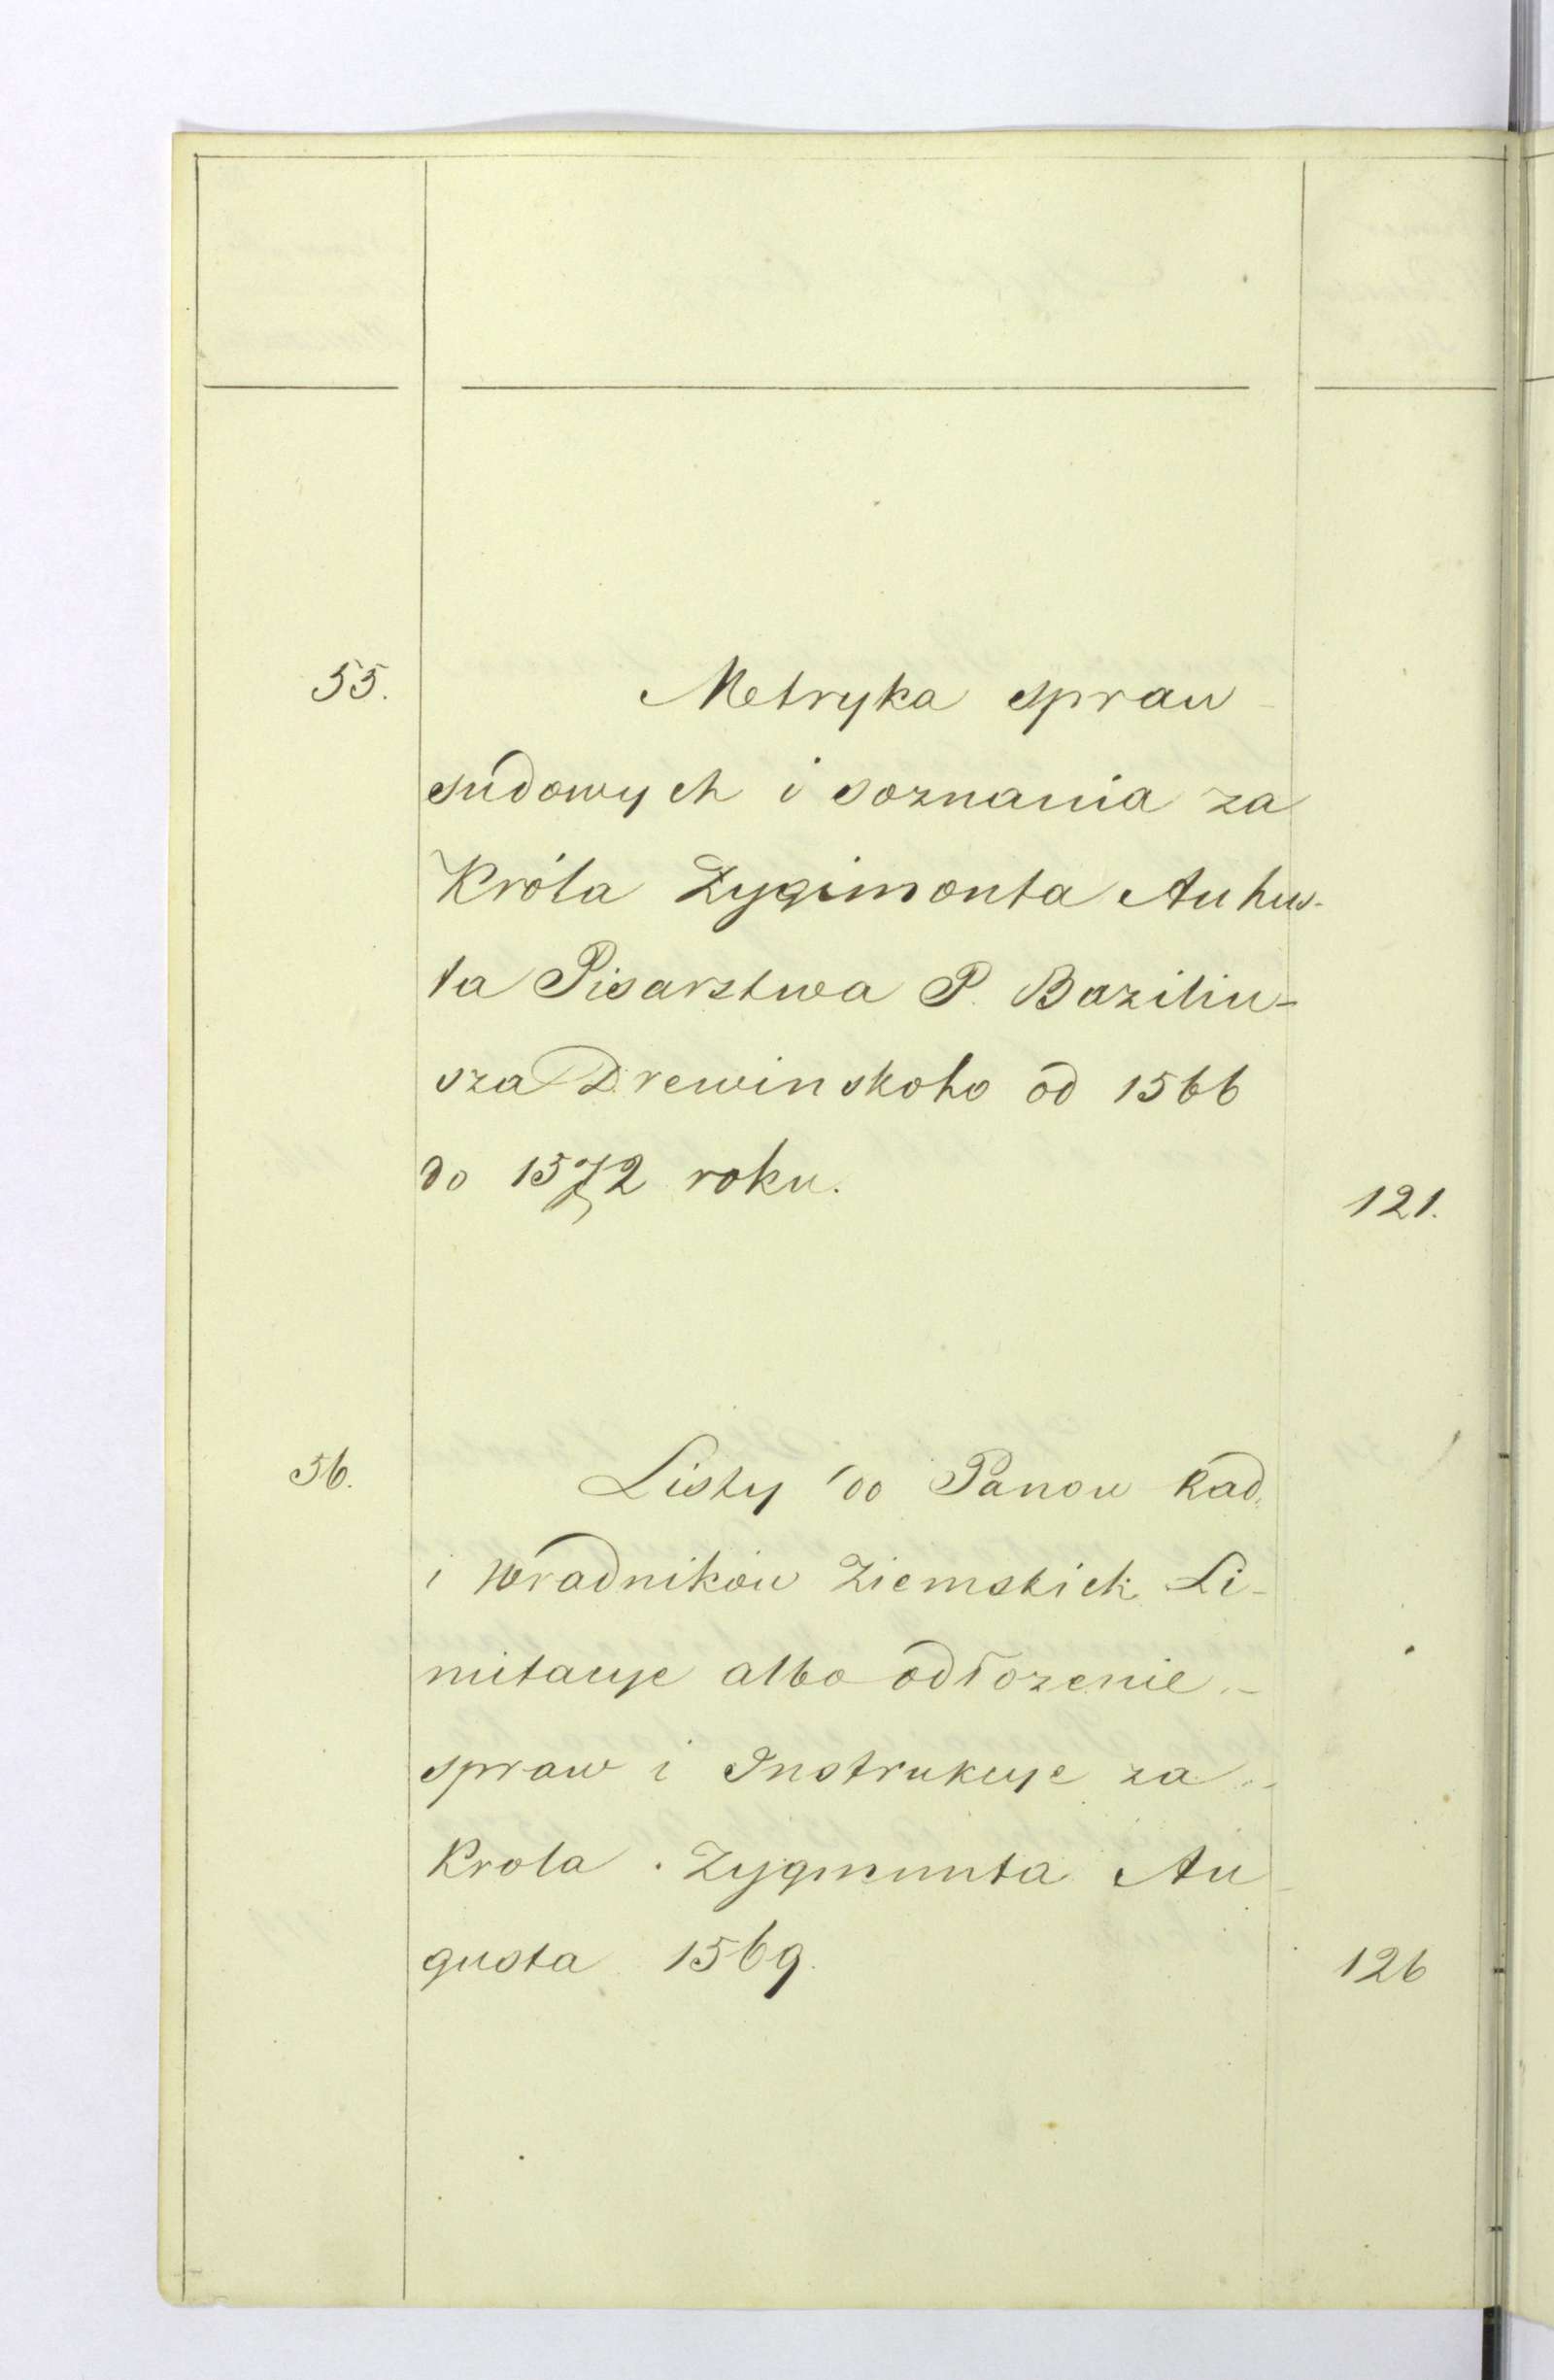 55. Metryka spraw
sudowych i soznania za
Króla Zygimonta Auhus-
ta Pisarstwa P. Baziliu-
sza Drewinskoho od 1566
do 1572 roku. 121.
56. Listy do Panow Rad
i Wradników Ziemskich Li-
mitacye albo odłozenie
spraw i Instrukcye za
Krola Zygmunta Au-
gusta 1569. 126